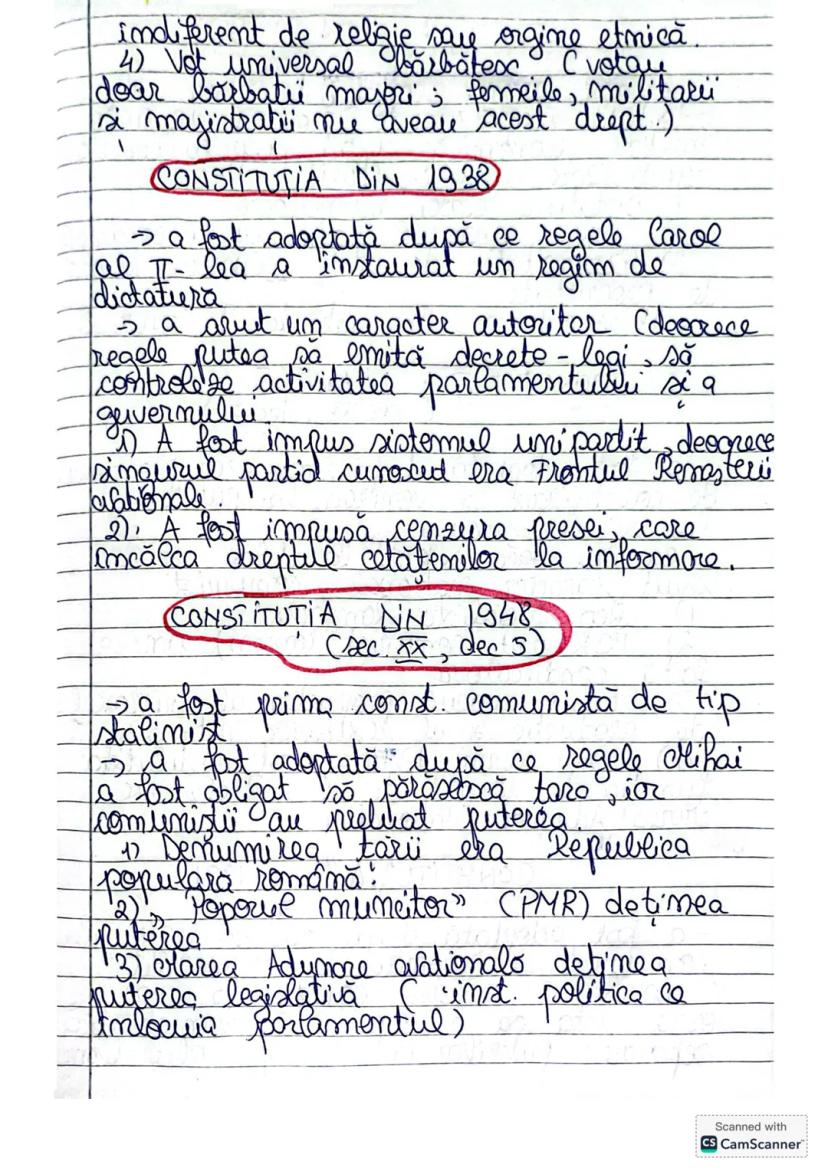 indiferent de religie sau orgine etnică.
4) Vot universal bărbătesc (votau
doar bărbatii majori; femeile, militarii
și majistratii nu aveau acest drept.)
CONSTITUȚIA DIN 1938
→ a fost adoptată după ce regele Carol
al II-lea a instaurat un regim de
dictatură
→ a avut un caracter autoritar (deoarece
regele putea să emită decrete-legi, să
controleze activitatea parlamentului și a
guvernului.
1) A fost impus sistemul unipartit, deoarece
singurul partid cunoscut era Frontul Renașterii
Naționale.
2). A fost impusă cenzura presei, care
încălca dreptul cetățenilor la informare.
CONSTITUȚIA DIN 1948
(sec XX, dec 5)
→ a fost prima const. comunistă de tip
stalinist
→ a fost adoptată după ce regele Mihai
a fost obligat să părăsească tara, iar
comuniștii au preluat puterea.
1) Denumirea tării era Republica
populara română.
2) „Poporul muncitor" (PMR) deținea
puterea
3) Marea Adunare Nationala deținea
puterea legislativă (inst. politica ce
înlocuia parlamentul)
Scanned with
CS CamScanner